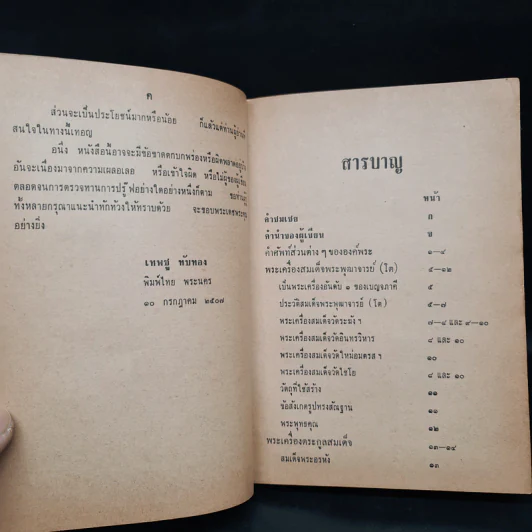 ค
ส่วนจะเป็นประโยชน์มากหรือน้อย ก็แล้วแต่ท่านผู้อ่านที่
สนใจในทางนี้เทอญ
อนึ่ง หนังสือนี้อาจจะมีข้อขาดตกบกพร่องหรือผิดพลาดอยู่บ้าง
อันจะเนื่องมาจากความเผลอเลอ หรือเข้าใจผิด หรือไม่รู้ของผู้เขียน
ตลอดจนการตรวจทานการปรู๊ฟอย่างใดอย่างหนึ่งก็ตาม ขอท่านผู้
ทั้งหลายกรุณาแนะนำทักท้วงให้ทราบด้วย จะขอบพระเดชพระคุณ
อย่างยิ่ง
เทพชู ทับทอง
พิมพ์ไทย พระนคร
๑๐ กรกฎาคม ๒๕๐๗
สารบาญ
หน้า
คำชมเชย ก
คำนำของผู้เขียน ข
คำศัพท์ส่วนต่าง ๆ ขององค์พระ ๑–๔
พระเครื่องสมเด็จพระพุฒาจารย์ (โต) ๕–๑๒
เป็นพระเครื่องอันดับ ๑ ของเบญจภาคี ๕
ประวัติสมเด็จพระพุฒาจารย์ (โต) ๕–๗
พระเครื่องสมเด็จวัดระฆัง ฯ ๗–๘ และ ๙–๑๐
พระเครื่องสมเด็จวัดอินทรวิหาร ๘ และ ๑๐
พระเครื่องสมเด็จวัดใหม่อมตรส ฯ ๑๐
พระเครื่องสมเด็จวัดไชโย ๘ และ ๑๐
วัตถุที่ใช้สร้าง ๑๑
ข้อสังเกตรูปทรงสัณฐาน ๑๑
พระพุทธคุณ ๑๒
พระเครื่องตระกูลสมเด็จ ๑๓–๑๔
สมเด็จพระอรหัง ๑๓